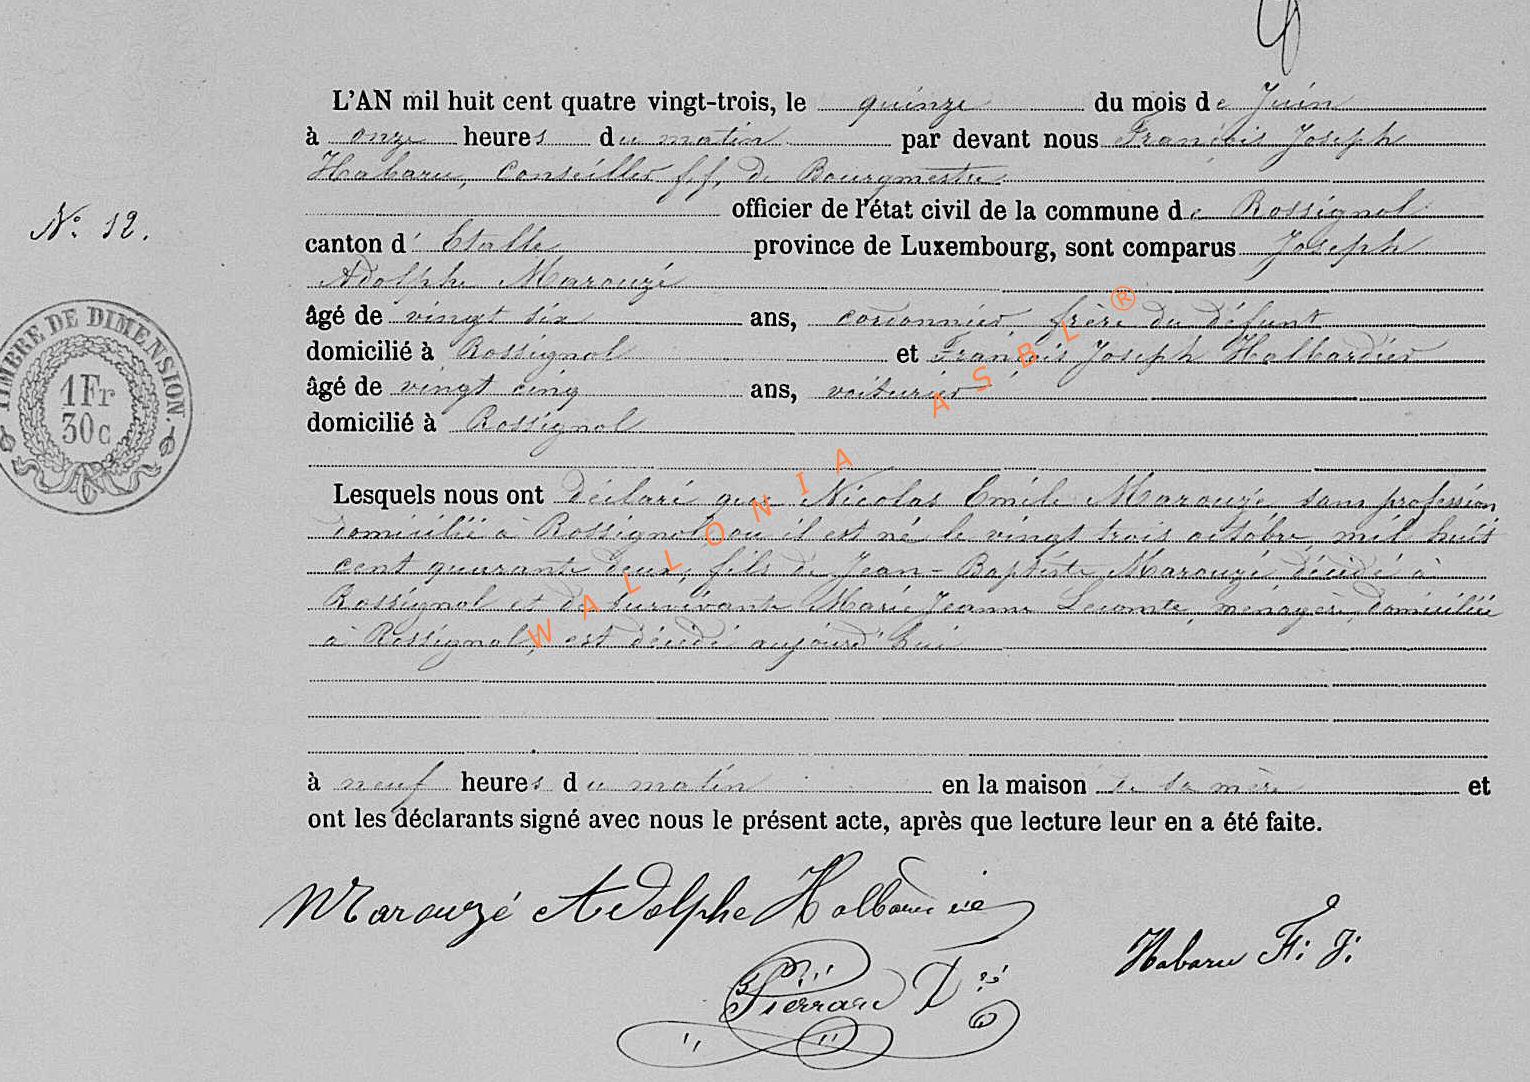 L'AN mil huit cent quatre vingt-trois, le quinze du mois de Juin
à onze heures du matin par devant nous François Joseph
Habaru, Conseiller ff. de Bourgmestre
officier de l'état civil de la commune de Rossignol
N° 12.
canton d'Etalle province de Luxembourg, sont comparus Joseph
Adolphe Marouzé
âgé de vingt six ans, cordonnier, frère du défunt
domicilié à Rossignol et François Joseph Halbardier
âgé de vingt cinq ans, voiturier
domicilié à Rossignol
TIMBRE DE DIMENSION.
1 Fr
30 c
Lesquels nous ont déclaré que Nicolas Emile Marouzé, sans profession
domicilié à Rossignol ou il est né le vingt trois octobre mil huit
cent quarante deux, fils de Jean-Baptiste Marouzé décédé à
Rossignol et de survivante Marie Jeanne Lecomte, ménagère, domiciliée
à Rossignol, est décédé aujourd'hui
à neuf heures du matin en la maison de sa mère et
ont les déclarants signé avec nous le présent acte, après que lecture leur en a été faite.
Marouzé Adolphe
Habaru F. J.
WALLONIA ASBL ®